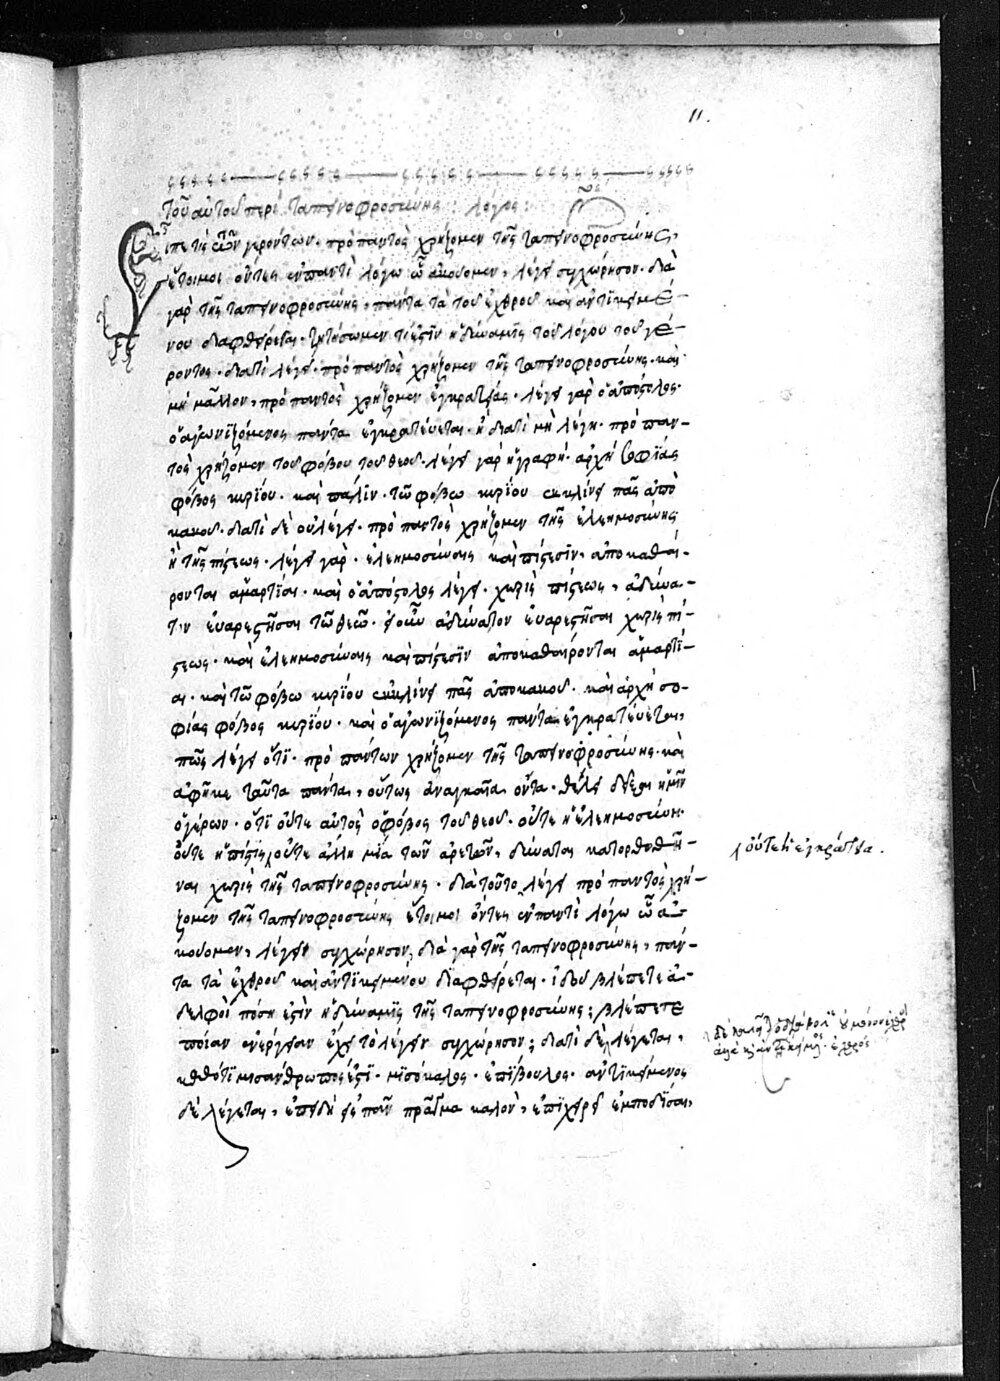 11.
τοῦ αὐτοῦ περὶ ταπεινοφροσύνης : λόγος :
Εἶπέ τις τῶν γερόντων· πρὸ παντὸς χρήζομεν τῆς ταπεινοφροσύνης,
ἕτοιμοι ὄντες ἐν παντὶ λόγω ὧ ἀκούομεν, λέγειν συγχώρησον· διὰ
γὰρ τῆς ταπεινοφροσύνης, πάντα τὰ τοῦ ἐχθροῦ καὶ ἀντικειμέ-
νου διαφθείρεται· ζητήσωμεν τί ἐστὶν ἡ δύναμις τοῦ λόγου τοῦ γέ-
ροντος· διατί λέγει· πρὸ παντὸς χρήζομεν τῆς ταπεινοφροσύνης· καὶ
μὴ μᾶλλον, πρὸ παντὸς χρήζομεν ἐγκρατείας· λέγει γὰρ ὁ ἀπόστολος·
ὁ ἀγωνιζόμενος πάντα ἐγκρατεύεται· ἢ διατί μὴ λέγη· πρὸ παν-
τὸς χρήζομεν τοῦ φόβου τοῦ θεοῦ· λέγει γὰρ ἡ γραφή· ἀρχὴ σοφίας
φόβος κυρίου· καὶ πάλιν· τῶ φόβω κυρίου ἐκκλίνει πᾶς ἀπὸ
κακοῦ· διατί δὲ οὐ λέγει· πρὸ παντὸς χρήζομεν τῆς ἐλεημοσύνης
ἢ τῆς πίστεως· λέγει γὰρ· ἐλεημοσύναις καὶ πίστεσιν, ἀποκαθαί-
ρονται ἁμαρτίαι· καὶ ὁ ἀπόστολος λέγει· χωρὶς πίστεως, ἀδύνα-
τον εὐαρεστῆσαι τῶ θεῶ· εἰ οὖν ἀδύνατον εὐαρεστῆσαι χωρὶς πί-
στεως· καὶ ἐλεημοσύναις καὶ πίστεσιν ἀποκαθαίρονται ἁμαρτί-
αι· καὶ τῶ φόβω κυρίου ἐκκλίνει πᾶς ἀπὸ κακοῦ· καὶ ἀρχὴ σο-
φίας φόβος κυρίου· καὶ ὁ ἀγωνιζόμενος πάντα ἐγκρατεύεται,
πῶς λέγει ὅτι· πρὸ πάντων χρήζομεν τῆς ταπεινοφροσύνης· καὶ
ἀφῆκε ταῦτα πάντα, οὕτως ἀναγκαῖα ὄντα· θέλει δεῖξαι ἡμῖν
ὁ γέρων· ὅτι οὔτε αὐτὸς ὁ φόβος τοῦ θεοῦ· οὔτε ἡ ἐλεημοσύνη·
οὔτε ἡ πίστις, οὔτε ἄλλη μία τῶν ἀρετῶν, δύναται κατορθωθῆ-
ναι χωρὶς τῆς ταπεινοφροσύνης· διὰ τοῦτο λέγει πρὸ παντὸς χρή-
ζομεν τῆς ταπεινοφροσύνης ἕτοιμοι ὄντες ἐν παντὶ λόγω ὧ ἀ-
κούομεν, λέγειν συγχώρησον, διὰ γὰρ τῆς ταπεινοφροσύνης, πάν-
τα τὰ ἐχθροῦ καὶ ἀντικειμένου διαφθείρεται· ἰδοὺ βλέπετε ἀ-
δελφοὶ πόση ἐστὶν ἡ δύναμις τῆς ταπεινοφροσύνης; βλέπετε
ποίαν ἐνέργειαν ἔχει τὸ λέγειν συγχώρησον; διατί δὲ λέγεται,
καθότι μισάνθρωπός ἐστι· μισόκαλος· ἐπίβουλος· ἀντικείμενος
δὲ λέγεται, ἐπειδὴ εἰς πᾶν πρᾶγμα καλὸν, ἐπιχειρεῖ ἐμποδίσαι,
οὔτε ἡ ἐγκράτεια.